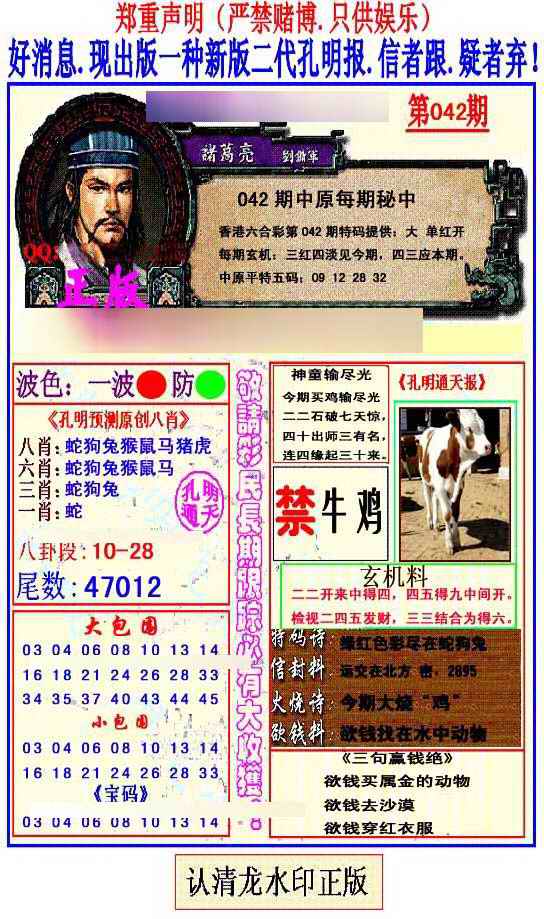 郑重声明（严禁赌博.只供娱乐）
好消息.现出版一种新版二代孔明报.信者跟.疑者弃！
第042期
諸葛亮 劉鎦軍
042 期中原每期秘中
香港六合彩第 042 期特码提供：大 单红开
每期玄机：三红四淡见今期，四三应本期。
中原平特五码：09 12 28 32
QQ:
正版
波色：一波 防
《孔明预测原创八肖》
八肖：蛇狗兔猴鼠马猪虎
六肖：蛇狗兔猴鼠马
三肖：蛇狗兔
一肖：蛇
孔明
通天
八卦段：10-28
尾数：47012
大包围
03 04 06 08 10 13 14
16 18 21 24 26 28 33
34 35 37 40 43 44 45
小包围
03 04 06 08 10 13 14
16 18 21 24 26 28 33
《宝码》
03 04 06 08 10 13 14
敬請彩民長期跟踪必有大收獲
神童输尽光
今期买鸡输尽光
二二石破七天惊，
四十出师三有名，
连四缘起三十来。
《孔明通天报》
禁 牛 鸡
玄机料
二二开来中得四，四五得九中间开。
检视二四五发财，三三结合为得六。
特码诗：绿红色彩尽在蛇狗兔
信封料：运交在北方 密，2895
火烧诗：今期大烧“鸡”
欲钱料：欲钱找在水中动物
《三句赢钱绝》
欲钱买属金的动物
欲钱去沙漠
欲钱穿红衣服
认清龙水印正版